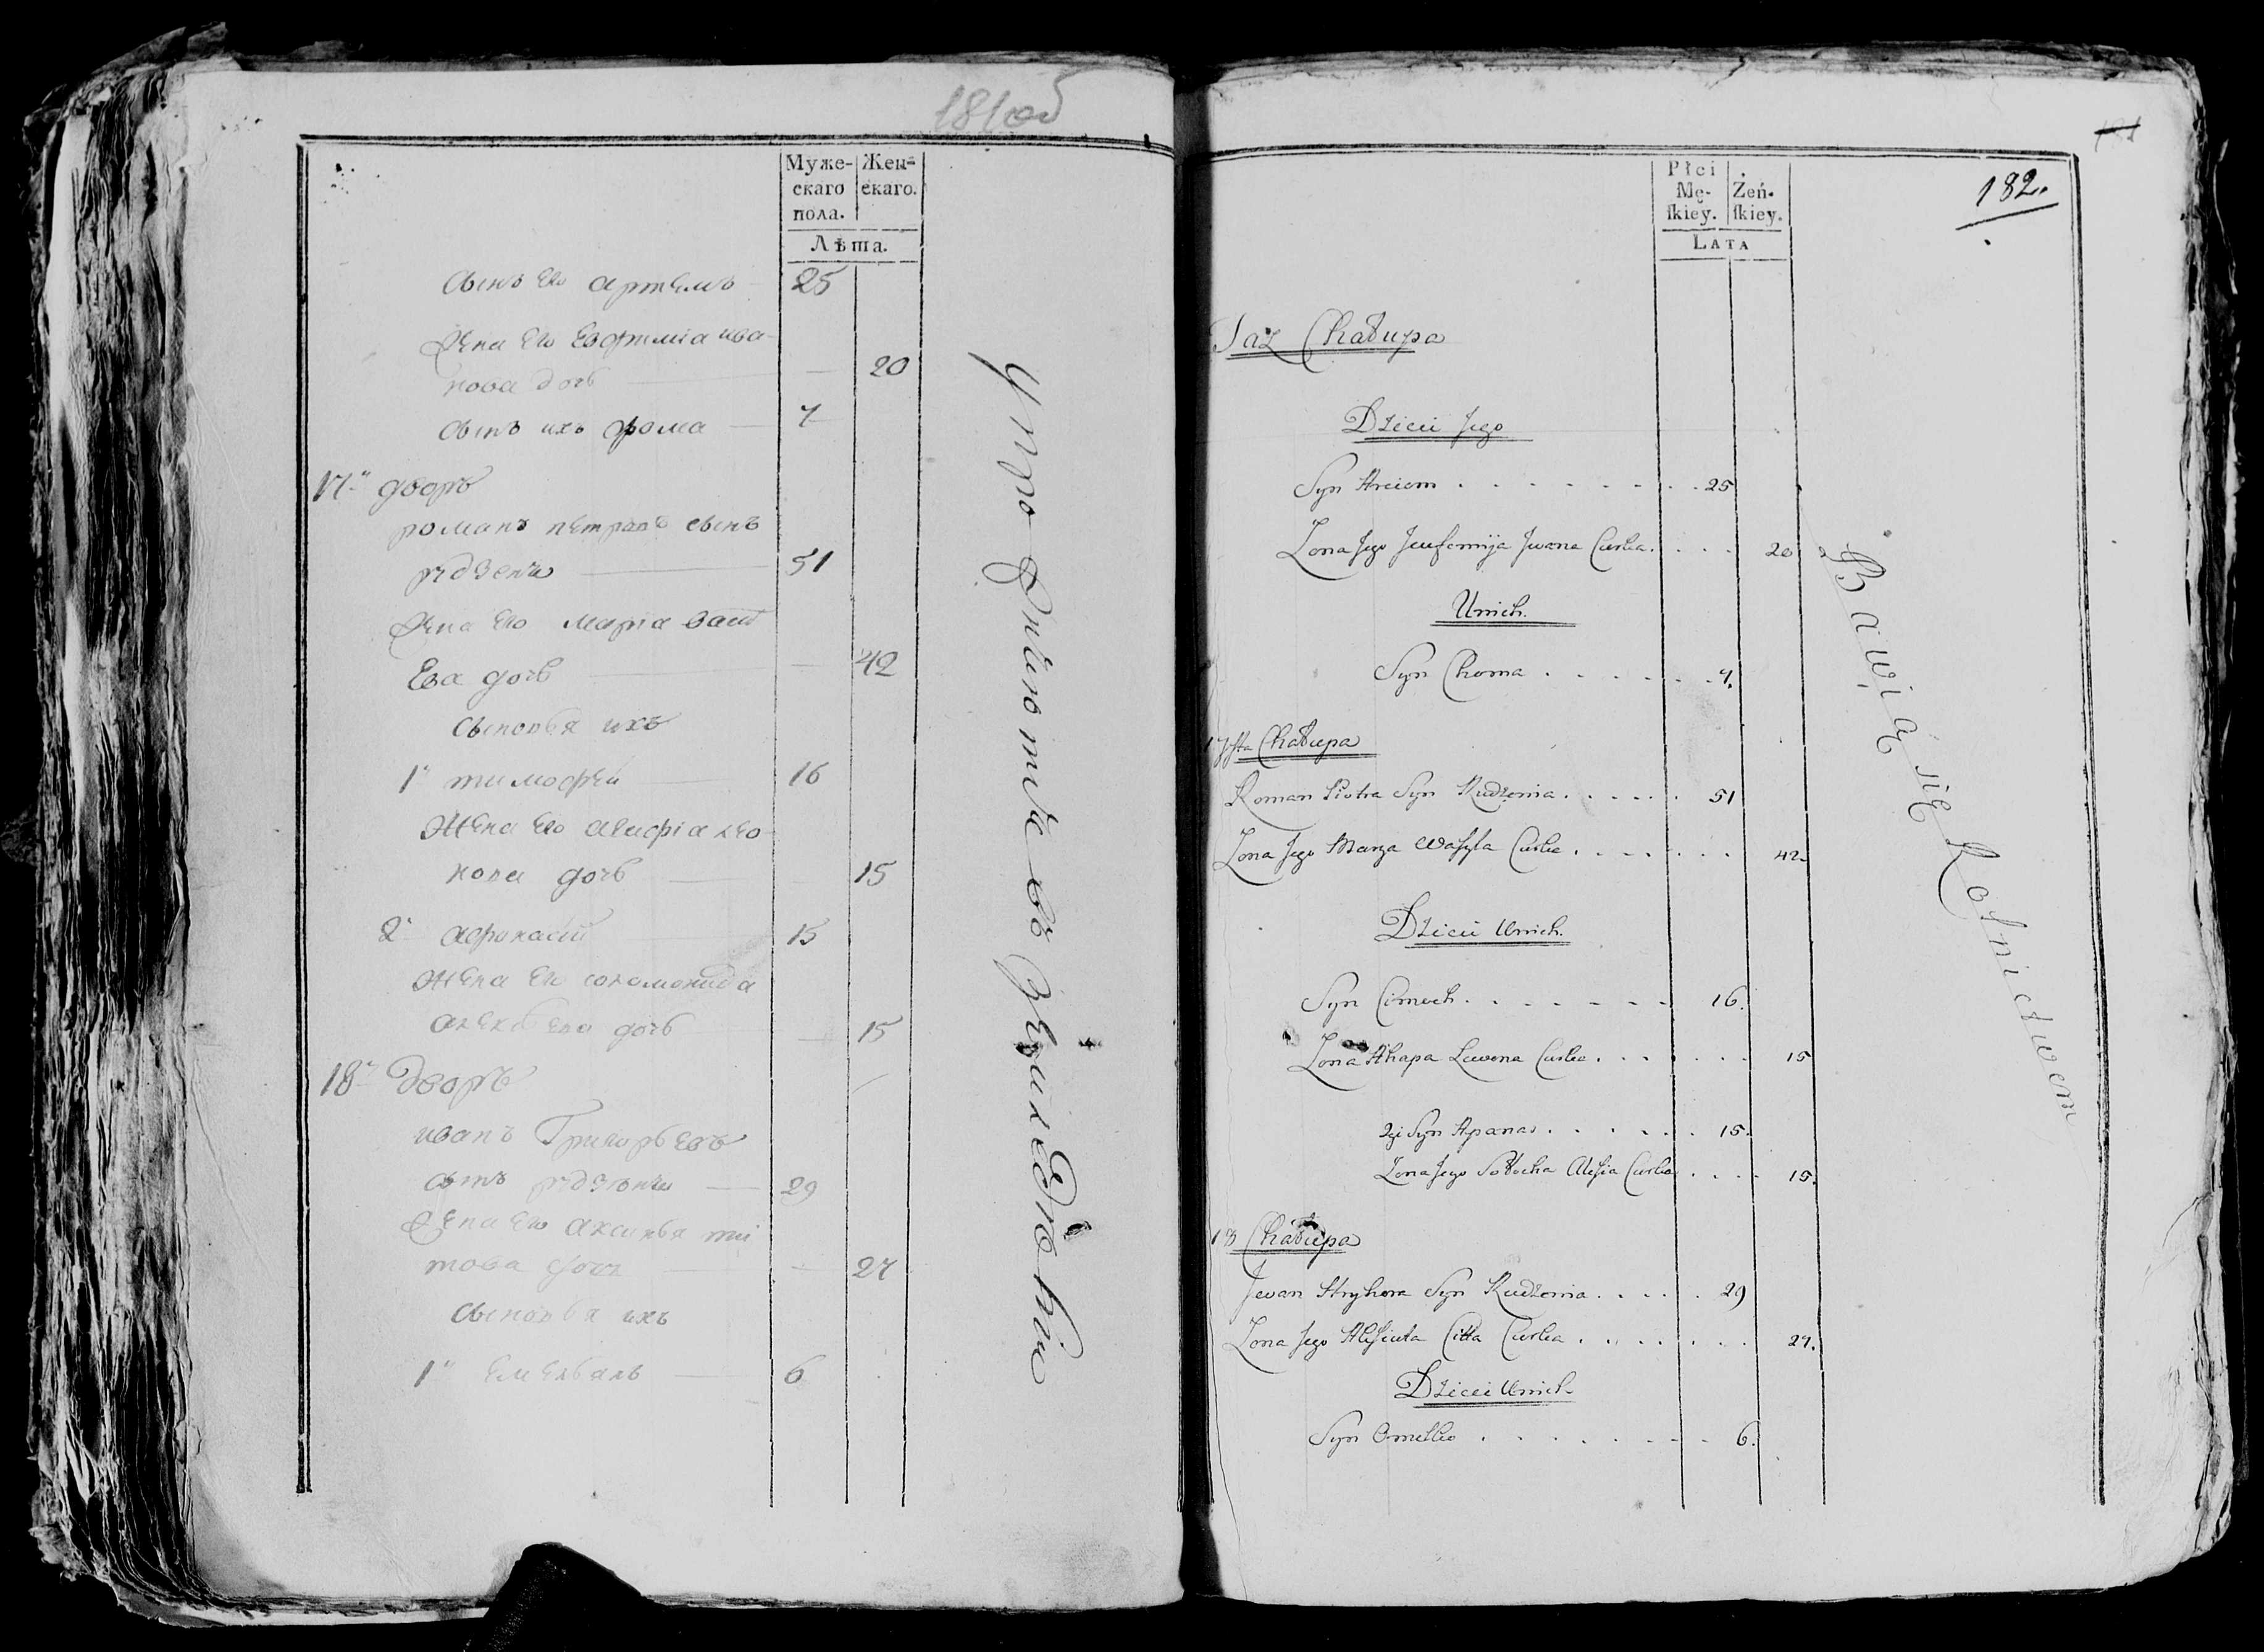 181об
Муже-
скаго
пола.
Жен-
скаго.
Лѣта.
сынъ Его артемъ 25
Жена Его Евфимiа ива-
нова дочь — 20
сынъ ихъ фома — 7
17й дворъ
романъ петровъ сынъ
рудзеня — 51
Жена Его марiа васи
Ева дочь — 42
сыновья ихъ
1й тимофей 16
Жена Его агафiа лео-
нова дочь — 15
2й афонасiй 15
Жена Его соломонида
дочь — 15
18й дворъ
иванъ Григорьевъ
сынъ рудзеня — 29
Жена Его аксинья ти
това дочь — 27
сыновья ихъ
1й Емельянъ — 6
упражняются въ земледелiи
182.
Płci
Mę-
skiey.
Żeń-
skiey.
LATA
Taż Chałupa
Dzieci Jego
Syn Arciom . . . . . . . . 25
Zona Jego Jeufemija Jwana Curka . . . . 20
U nich.
Syn Choma . . . . . . . 7.
17sta Chałupa
Roman Piotra Syn Rudzenia . . . . . 51
Zona Jego Marya Wasyla Curka . . . . . . . 42.
Dzieci U nich.
Syn Cimoch . . . . . . . 16.
Zona Ahapa Lewona Curka . . . . . . 15
2gi Syn Apanas . . . . . . 15.
Zona Jego Sołocha Alesia Curka . . . . 15.
18 Chałupa
Jwan Hryhora Syn Rudzenia . . . . . 29
Zona Jego Citta Curka . . . . . . . 27.
Dzieci U nich.
Syn Omelko . . . . . . . . . 6.
Bawią się Rolnictwem